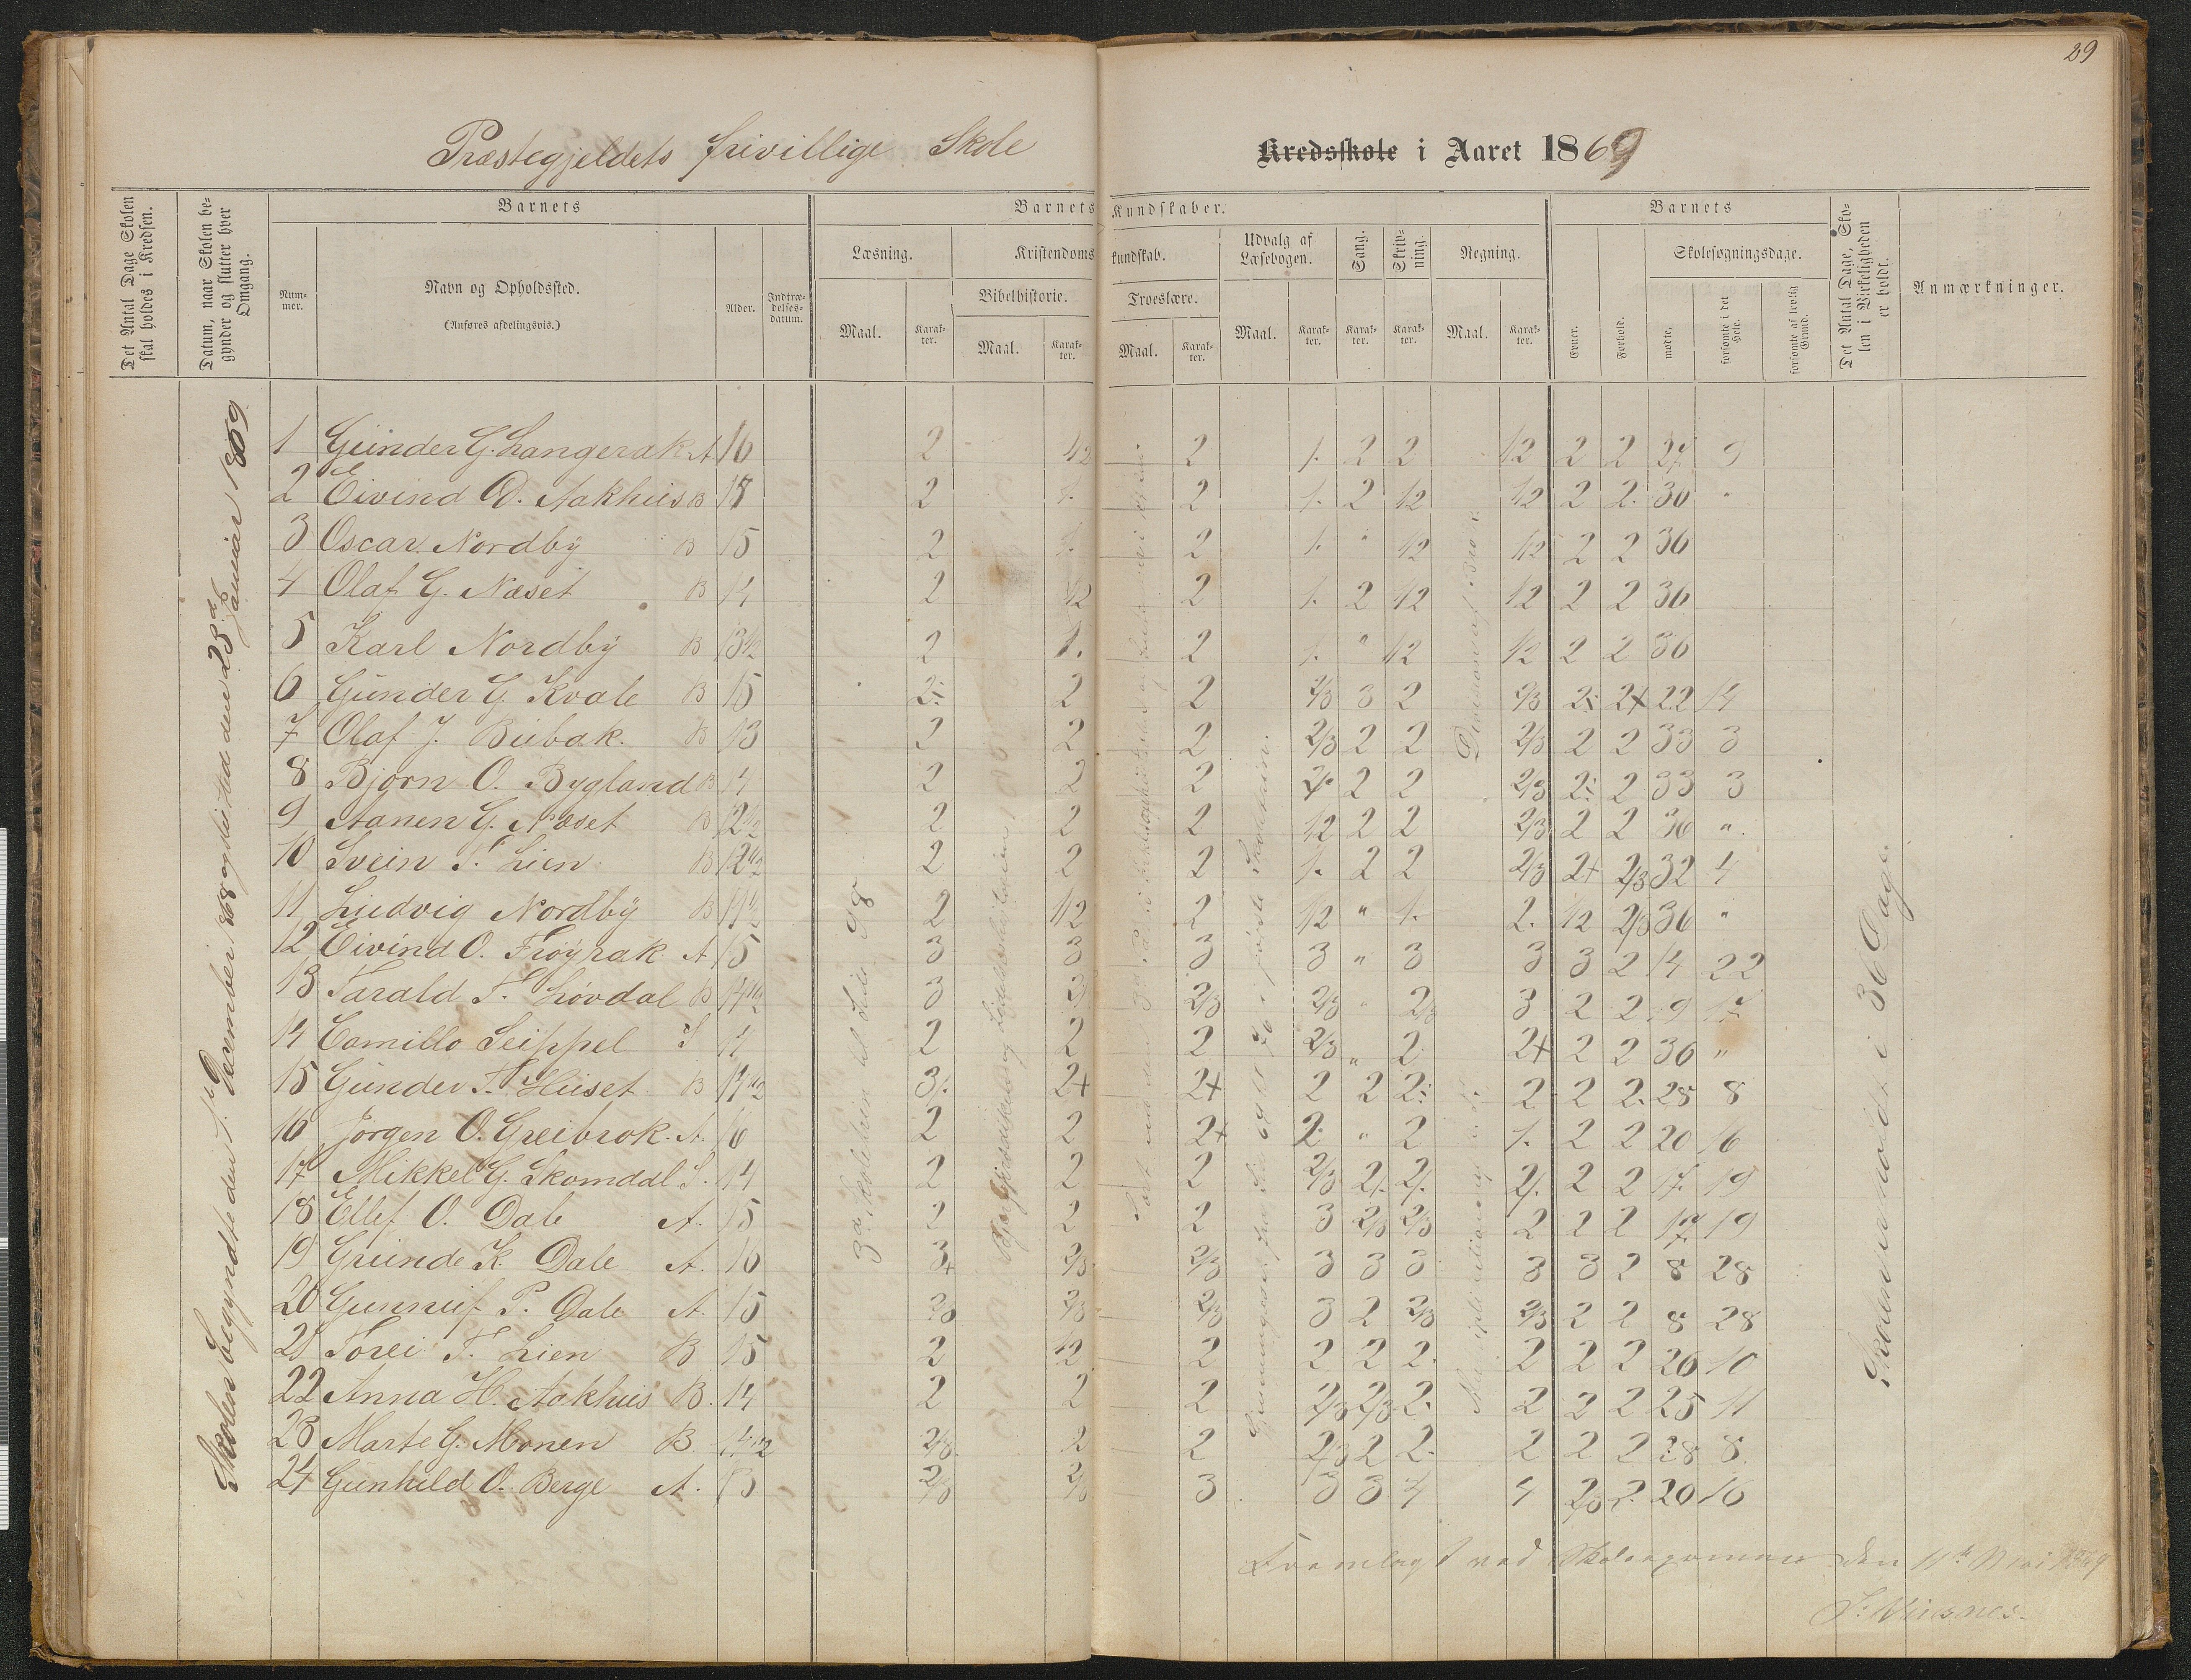 29
Præstegjeldets frivillige Skole
Kredsskole i Aaret 1869
Det Antal Dage Skolen skal holdes i Kredsen.
Datum, naar Skolen begynder og slutter hver Omgang.
Barnets
Nummer.
Navn og Opholdssted.
(Anføres afdelingsvis.)
Alder.
Indtrædelsesdatum.
Barnets Kundskaber.
Læsning.
Maal.
Karakter.
Kristendomskundskab.
Bibelhistorie.
Maal.
Karakter.
Troeslære.
Maal.
Karakter.
Udvalg af Læsebogen.
Maal.
Karakter.
Sang.
Karakter.
Skrivning.
Karakter.
Regning.
Maal.
Karakter.
Barnets
Evner.
Forhold.
Skolesøgningsdage.
mødte.
forsømte i det Hele.
forsømte af lovlig Grund.
Det Antal Dage, Skolen i Virkeligheden er holdt.
Anmærkninger.
Skolen begyndte den 1ste December 1868 og sluttet den 23d Januar 1869
1 Gunder G. Langerak A 16 2 1/2 2 1. 2 2 1/2 2 2 27 9
2 Eivind O. Aakhus B 18 2 1. 2 1. 2 1/2 1/2 2 2. 36 "
3 Oscar Nordby B 15 2 1. 2 1. " 1/2 1/2 2 2 36
4 Olaf G. Næset B 14 2 1/2 2 1. 2 1/2 1/2 2 2 36
5 Karl Nordby B 13 1/2 2 1. 2 1. " 1/2 1/2 2 2 36
6 Gunder G. Kvale B 15 2÷ 2 2 2/3 3 2 2/3 2÷ 2+ 22 14
7 Olaf J. Bubak. B 13 2 2 2 2/3 2 2 2/3 2 2 33 3
8 Bjørn O. Bygland B 14 2 2 2 2 2 2 2/3 2÷ 2 33 3
9 Aanen G. Næset B 12 1/2 2 2 2 1/2 2 2 2/3 2 2 36 "
10 Svein T. Lien B 12 1/2 2 2 2 1. 2 2 2/3 2+ 2/3 32 4
11 Ludvig Nordby B 11 1/2 2 1/2 2 1/2 " 1. 2. 1/2 2/3 36 "
12 Eivind O. Frøyrak A 15 3 3 3 3 " 3 3 3 2 14 22
13 Tarald T. Løvdal B 14 1/2 3 2/3 2/3 2/3 " 2/3 3 2 2 19 17
14 Camillo Seippel S 14 2 2 2 2/3 " 2 2+ 2 2 36 "
15 Gunder T. Huset B 14 1/2 3÷ 2+ 2+ 2 2 2÷ 2 2 2. 28 8
16 Jørgen O. Greibrok. A. 16 2 2 2+ 2 " 2 1. 2 2 20 16
17 Mikkel G. Skomdal S. 14 2 2 2 2/3 2/. 2/. 2/. 2 2 17. 19
18 Ellef O. Dale A. 15 2 2 2 3 2/3 2/3 2 2 2 17 19
19 Grunde K. Dale A. 16 3+ 2/3 2/3 3 3 3 3 3 2 8 28
20 Gunnuf P. Dale A. 15 2/3 2/3 2/3 3 2 2/3 2/3 2 2 8 28
21 Torei T. Lien B 15 2 1/2 2 2 2 2. 2 2 2 26 10
22 Anna H. Aakhus B. 14 2 2 2 2/3 2/3 2. 2 2 2 25 11
23 Marte G. Monen B 14 1/2 2/3 2 2 2/3 2 2. 2 2 2 28 8
24 Gunhild O. Berge A. 13 2/3 2/3 3 3 3 4 4 2/3 2. 20 16
Skolen er holdt i 36 Dage.
Fremlagt ved Skoleexamen den 11te Mai 1869